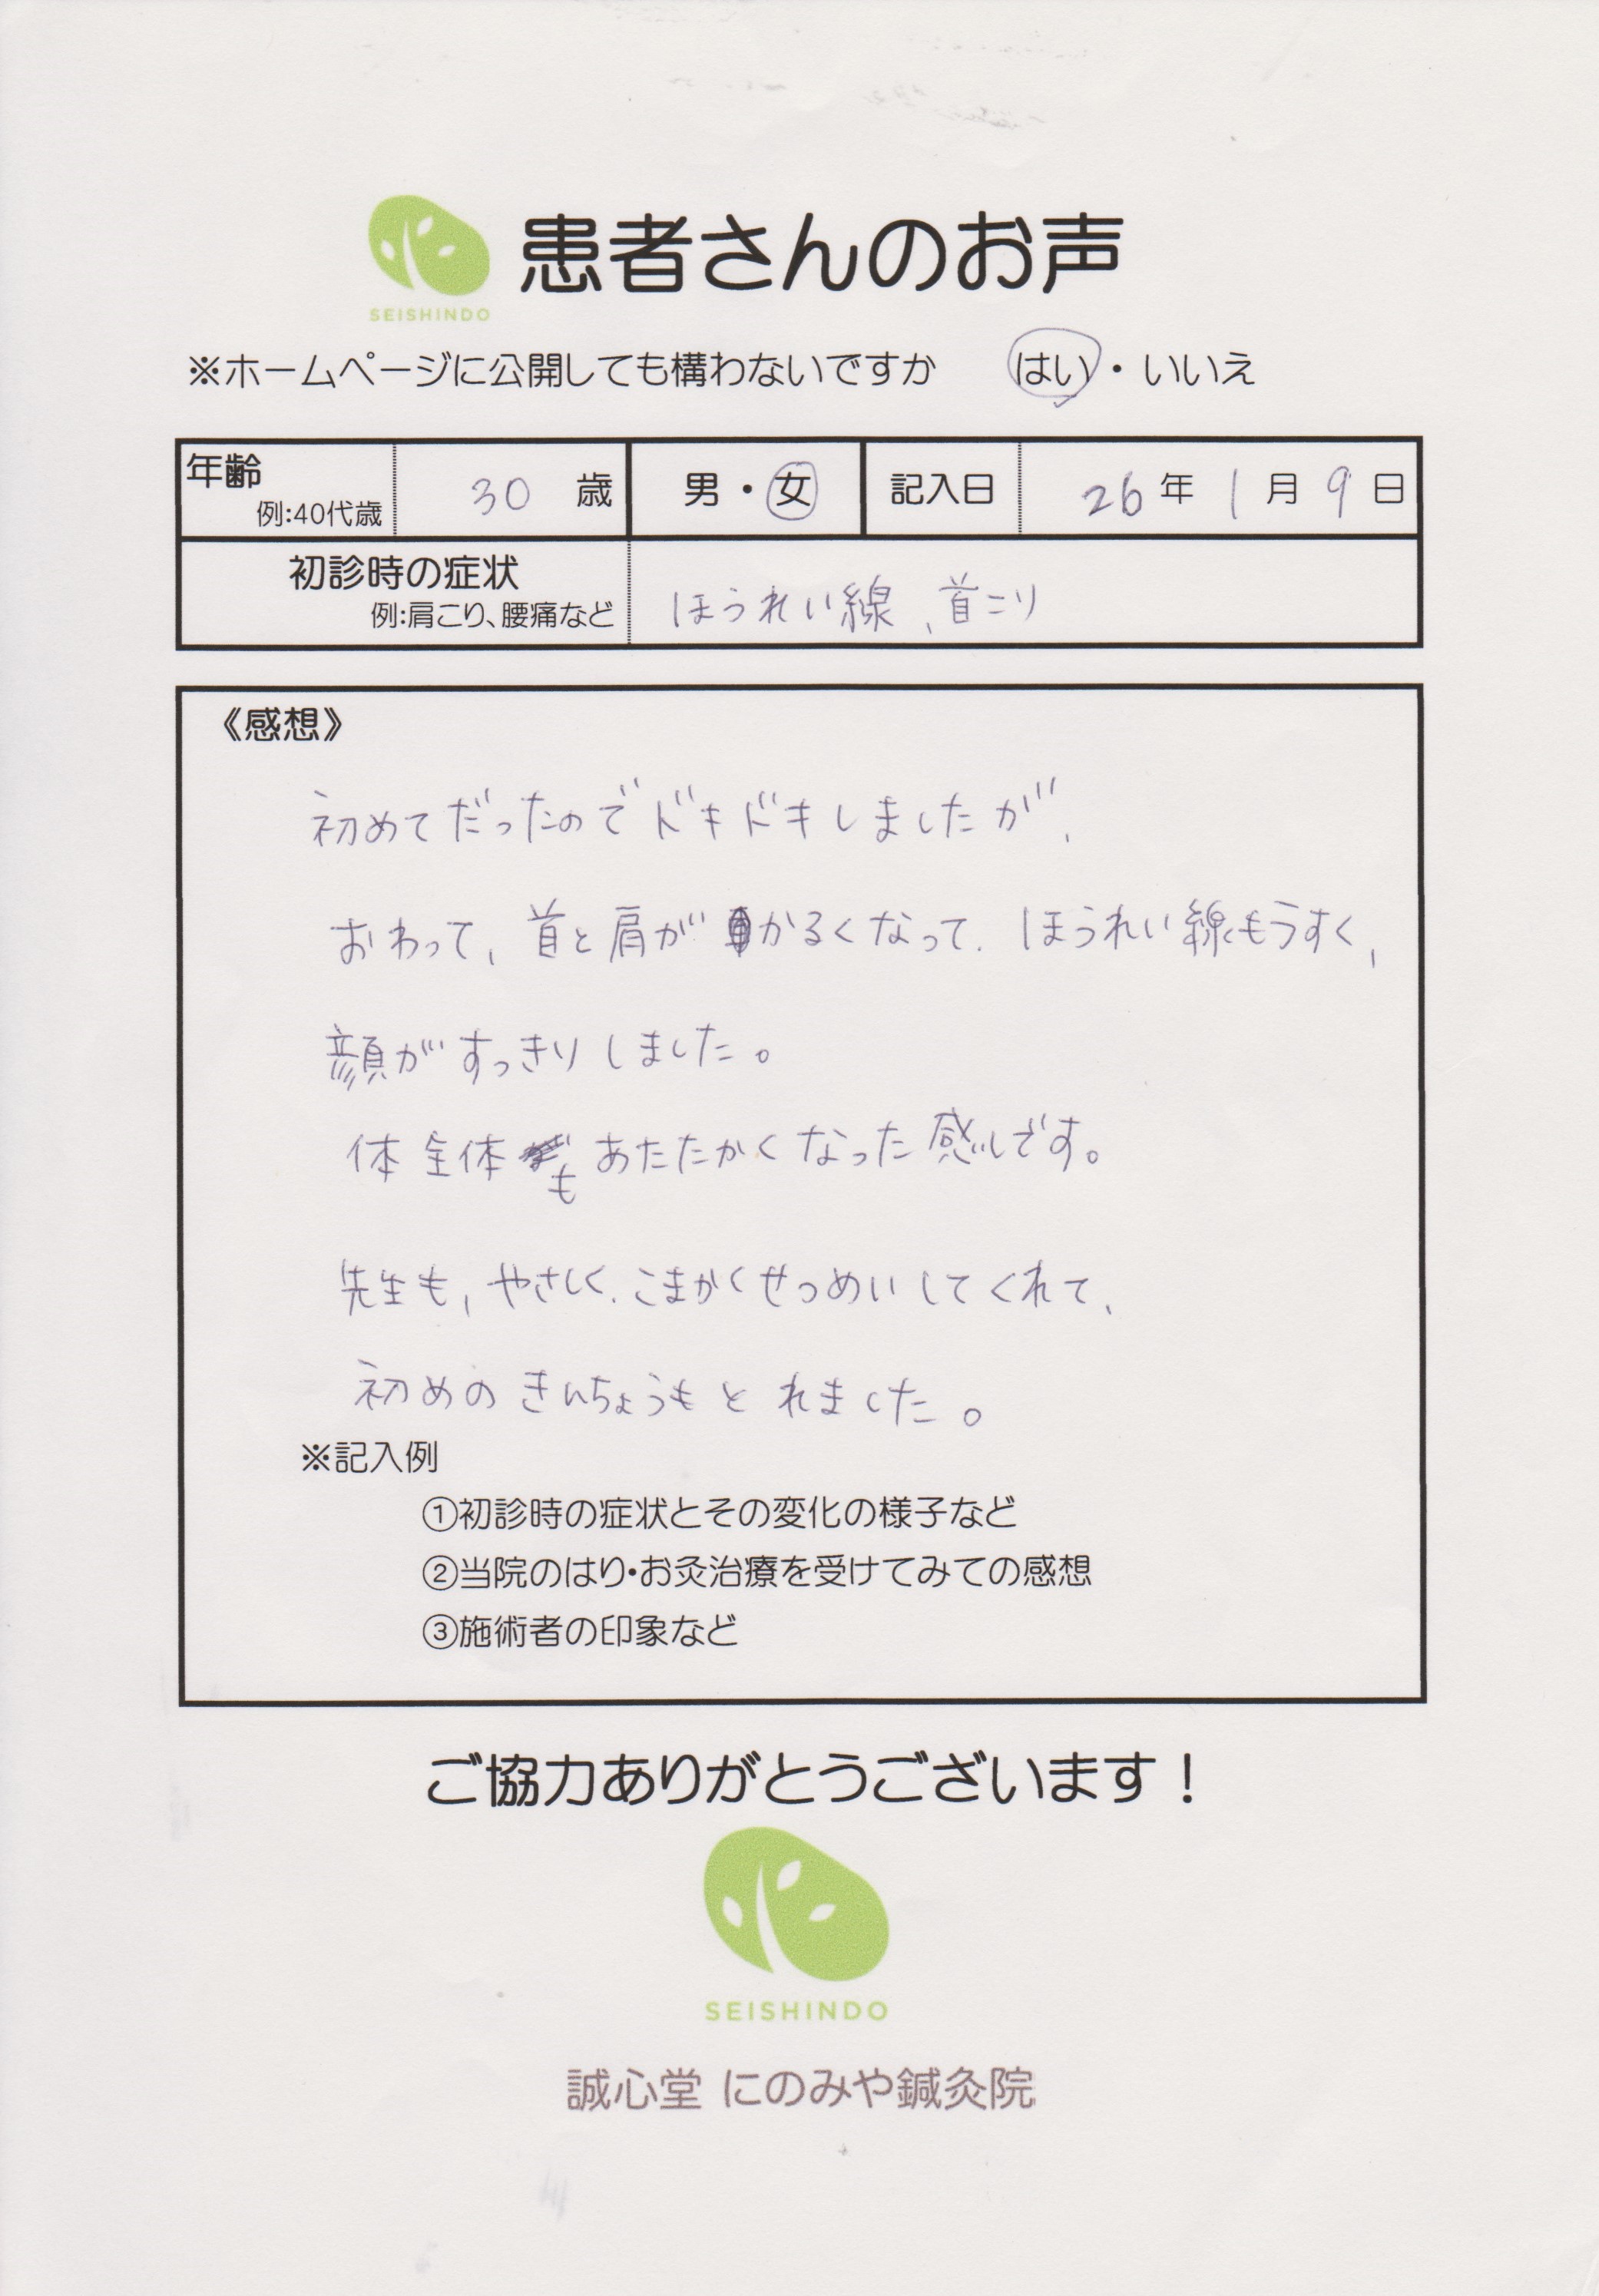 SEISHINDO
患者さんのお声
※ホームページに公開しても構わないですか はい・いいえ
年齢 例:40代歳 30 歳 男・女 記入日 26年 1月 9日
初診時の症状 ほうれい線、首こり
例:肩こり、腰痛など
《感想》
初めてだったのでドキドキしましたが、
おわって、首と肩がかるくなって、ほうれい線もうすく、
顔がすっきりしました。
体全体もあたたかくなった感じです。
先生も、やさしく、こまかくせつめいしてくれて、
初めのきんちょうもとれました。
※記入例
①初診時の症状とその変化の様子など
②当院のはり・お灸治療を受けてみての感想
③施術者の印象など
ご協力ありがとうございます!
SEISHINDO
誠心堂 にのみや鍼灸院